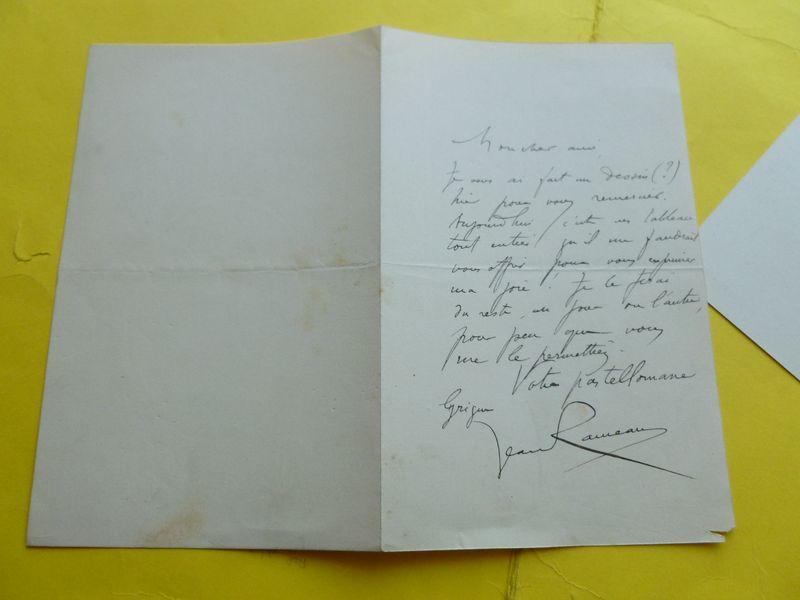 Mon cher ami,
Je vous ai fait un dessin (?)
hier pour vous remercier.
Aujourd'hui c'est un tableau
tout entier qu'il me faudrait
vous offrir pour vous exprimer
ma joie. Je le ferai
du reste, un jour ou l'autre,
pour peu que vous
me le permettiez.
Votre pastellomane
Jean Rameau